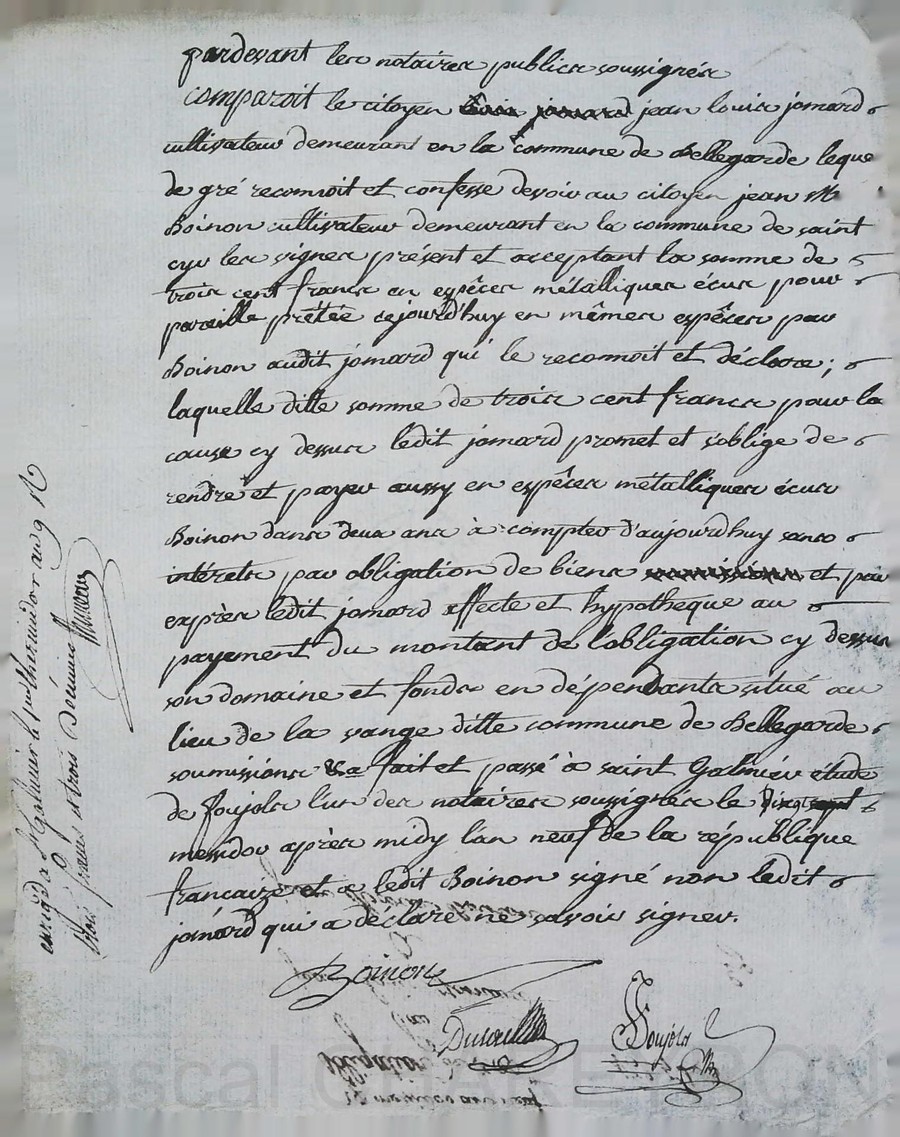 pardevant les notaires publics soussignés
comparoit le citoyen jean louis jomard
cultivateur demeurant en la commune de Bellegarde leque
de gré reconnoit et confesse devoir au citoyen jean M
Boinon cultivateur demeurant en la commune de saint
cyr les vignes présent et acceptant la somme de
trois cent francs en espêces métalliques écus pour
pareille prêtée cejourd'huy en mêmes espêces par
Boinon audit jomard qui le reconnoit et déclare;
laquelle ditte somme de trois cent francs pour la
cause cy dessus ledit jomard promet et s'oblige de
rendre et payer aussy en espêces métalliques écus
Boinon dans deux ans à compter d'aujourd'huy sans
intérets par obligation de biens et par
exprès ledit jomard affecte et hypothèque au
payement du montant de l'obligation cy dessus
son domaine et fonds en déspendants situé au
lieu de la vange ditte commune de Bellegarde
soumissions &a fait et passé à saint Galmier étude
de foujols l'un des notaires soussignés le vingt sept
messidor après midy l'an neuf de la république
francaize et a ledit Boinon signé non ledit
jomard qui a déclaré ne savoir signer.
Boinon
Foujols
enrigd a St Galmier le thermidor an 9 R
trois francs et trois décimes